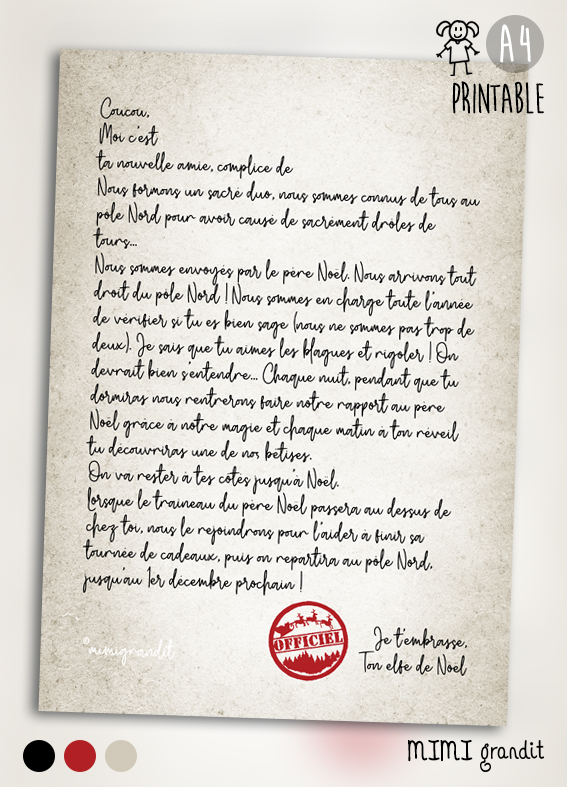 A4
PRINTABLE
Coucou,
Moi c'est
ta nouvelle amie, complice de
Nous formons un sacré duo, nous sommes connus de tous au
pôle Nord pour avoir causé de sacrément drôles de
tours...
Nous sommes envoyés par le père Noël. Nous arrivons tout
droit du pôle Nord ! Nous sommes en charge toute l'année
de vérifier si tu es bien sage (nous ne sommes pas trop de
deux). Je sais que tu aimes les blagues et rigoler ! On
devrait bien s'entendre... Chaque nuit, pendant que tu
dormiras nous rentrerons faire notre rapport au père
Noël grâce à notre magie et chaque matin à ton réveil
tu découvriras une de nos bêtises.
On va rester à tes côtés jusqu'à Noël.
Lorsque le traineau du père Noël passera au dessus de
chez toi, nous le rejoindrons pour l'aider à finir sa
tournée de cadeaux, puis on repartira au pôle Nord,
jusqu'au 1er décembre prochain !
OFFICIEL
Je t'embrasse,
Ton elfe de Noël
©mimigrandit
MIMI grandit